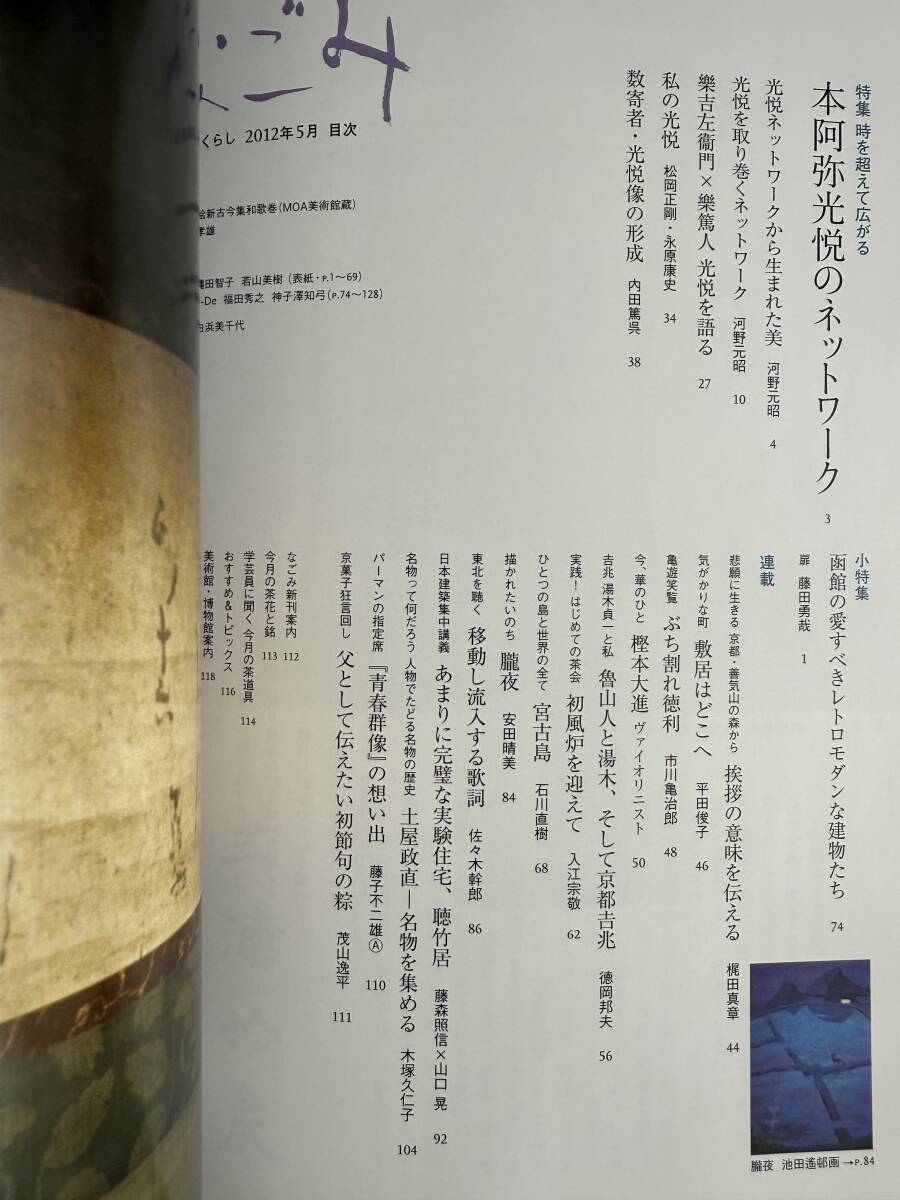 ごみ
くらし 2012年5月 目次
絵新古今集和歌巻(MOA美術館蔵)
孝雄
縄田智子 若山美樹(表紙・P.1〜69)
-De 福田秀之 神子澤知弓(P.74〜128)
白浜美千代
特集 時を超えて広がる
本阿弥光悦のネットワーク 3
光悦ネットワークから生まれた美 河野元昭 4
光悦を取り巻くネットワーク 河野元昭 10
樂吉左衞門×樂篤人 光悦を語る 27
私の光悦 松岡正剛・永原康史 34
数寄者・光悦像の形成 内田篤呉 38
小特集
函館の愛すべきレトロモダンな建物たち 74
扉 藤田勇哉 1
連載
悲願に生きる 京都・善気山の森から 挨拶の意味を伝える 梶田真章 44
気がかりな町 敷居はどこへ 平田俊子 46
亀遊笑覧 ぶち割れ徳利 市川亀治郎 48
今、華のひと 樫本大進 ヴァイオリニスト 50
𠮷兆 湯木貞一と私 魯山人と湯木、そして京都𠮷兆 徳岡邦夫 56
実践!はじめての茶会 初風炉を迎えて 入江宗敬 62
ひとつの島と世界の全て 宮古島 石川直樹 68
描かれたいのち 朧夜 安田晴美 84
東北を聴く 移動し流入する歌詞 佐々木幹郎 86
日本建築集中講義 あまりに完璧な実験住宅、聴竹居 藤森照信×山口 晃 92
名物って何だろう 人物でたどる名物の歴史 土屋政直―名物を集める 木塚久仁子 104
パーマンの指定席 『青春群像』の想い出 藤子不二雄Ⓐ 110
京菓子狂言回し 父として伝えたい初節句の粽 茂山逸平 111
なごみ新刊案内 112
今月の茶花と銘 113
学芸員に聞く 今月の茶道具 114
おすすめ&トピックス 116
美術館・博物館案内 118
朧夜 池田遙邨画 →P.84